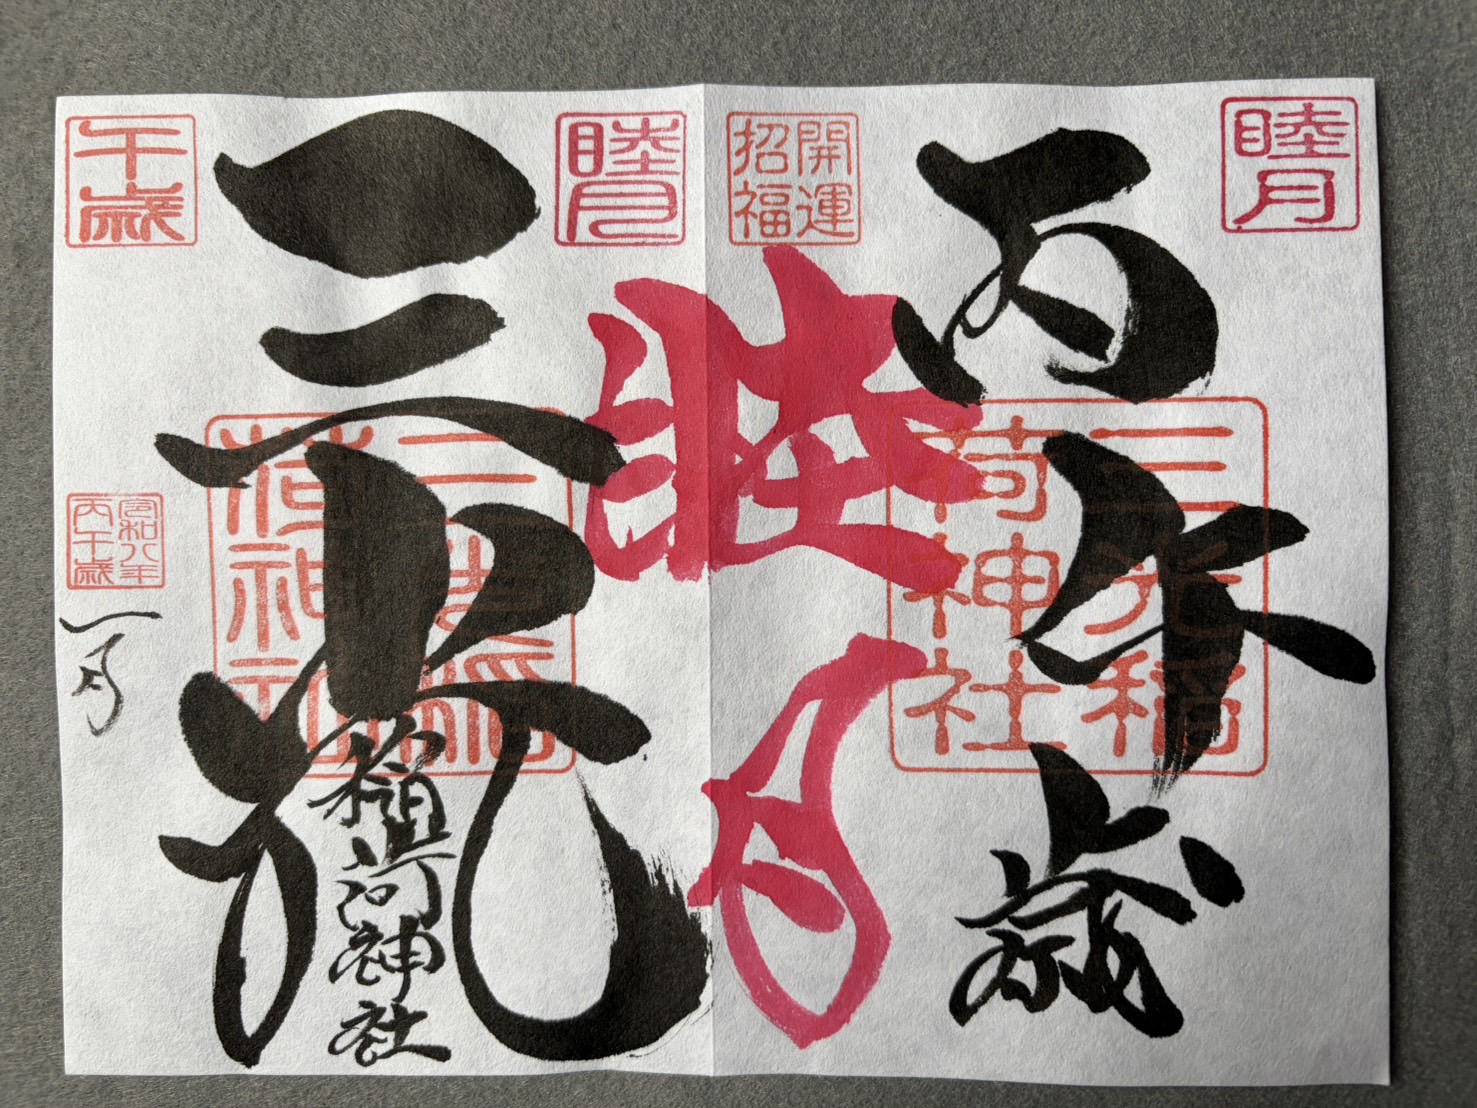 睦月
丙午歳
三光稲荷神社
開運招福
睦月
睦月
三光
稲荷神社
午歳
令和八年
丙午歳
一月